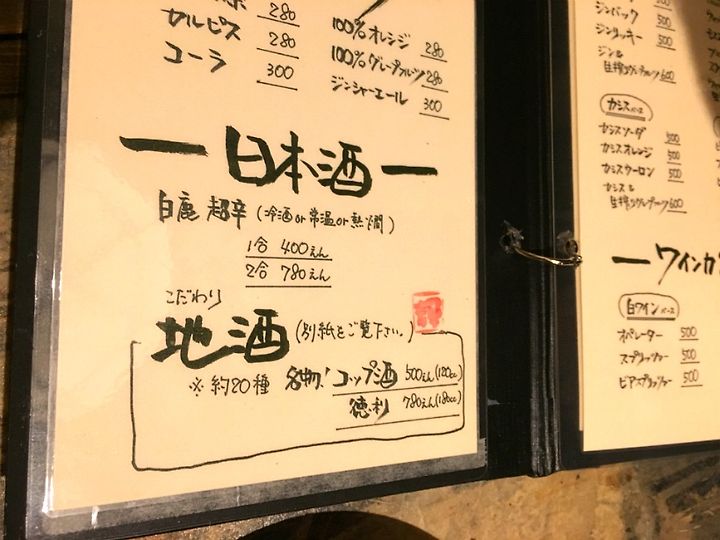 280
カルピス 280
コーラ 300
100%オレンジ 280
100%グレープフルツ 280
ジンジャーエール 300
日本酒
白鹿 超辛 (冷酒or常温or熱燗)
1合 400えん
2合 780えん
こだわり
地酒 (別紙をご覧下さい。)
※約20種 名物!コップ酒 500えん(120cc)
徳利 780えん(180cc)
ジンバック 500
ジンタッキー 500
ジン&
生搾りグレープフルーツ 600
カシスベース
カシスソーダ 500
カシスオレンジ 500
カシスウーロン 500
カシス&
生搾りグレープフルーツ 600
ワインカ
白ワインベース
オペレーター 500
スプリッツァー 500
ビアスプリッツァー 500